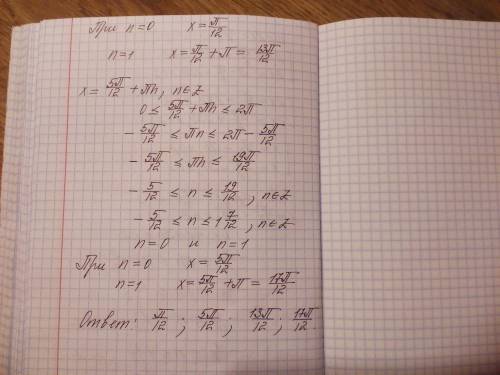 При n=0 x = π/12
n=1 x = π/12 + π = 13π/12
x = 5π/12 + πn, n∈Z
0 ≤ 5π/12 + πn ≤ 2π
- 5π/12 ≤ πn ≤ 2π - 5π/12
- 5π/12 ≤ πn ≤ 19π/12
- 5/12 ≤ n ≤ 19/12, n∈Z
- 5/12 ≤ n ≤ 1 7/12, n∈Z
n=0 и n=1
При n=0 x = 5π/12
n=1 x = 5π/12 + π = 17π/12
Ответ: π/12; 5π/12; 13π/12; 17π/12.